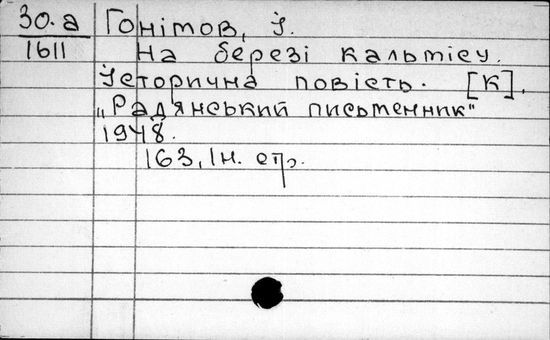 30.а Гонімов, І.
1611 На березі кальмієу.
Історична повість. [К],
„Радянський письменник"
1948.
163, 1 н. стр.